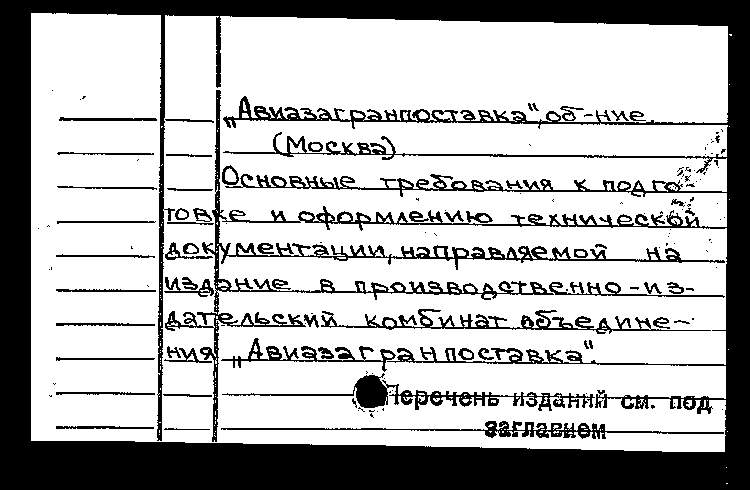 „Авиазагранпоставка", об-ние.
(Москва).
Основные требования к подго-
товке и оформлению технической
документации, направляемой на
издание в производственно-из-
дательский комбинат объедине-
ния „Авиазагранпоставка".
Перечень изданий см. под
заглавием